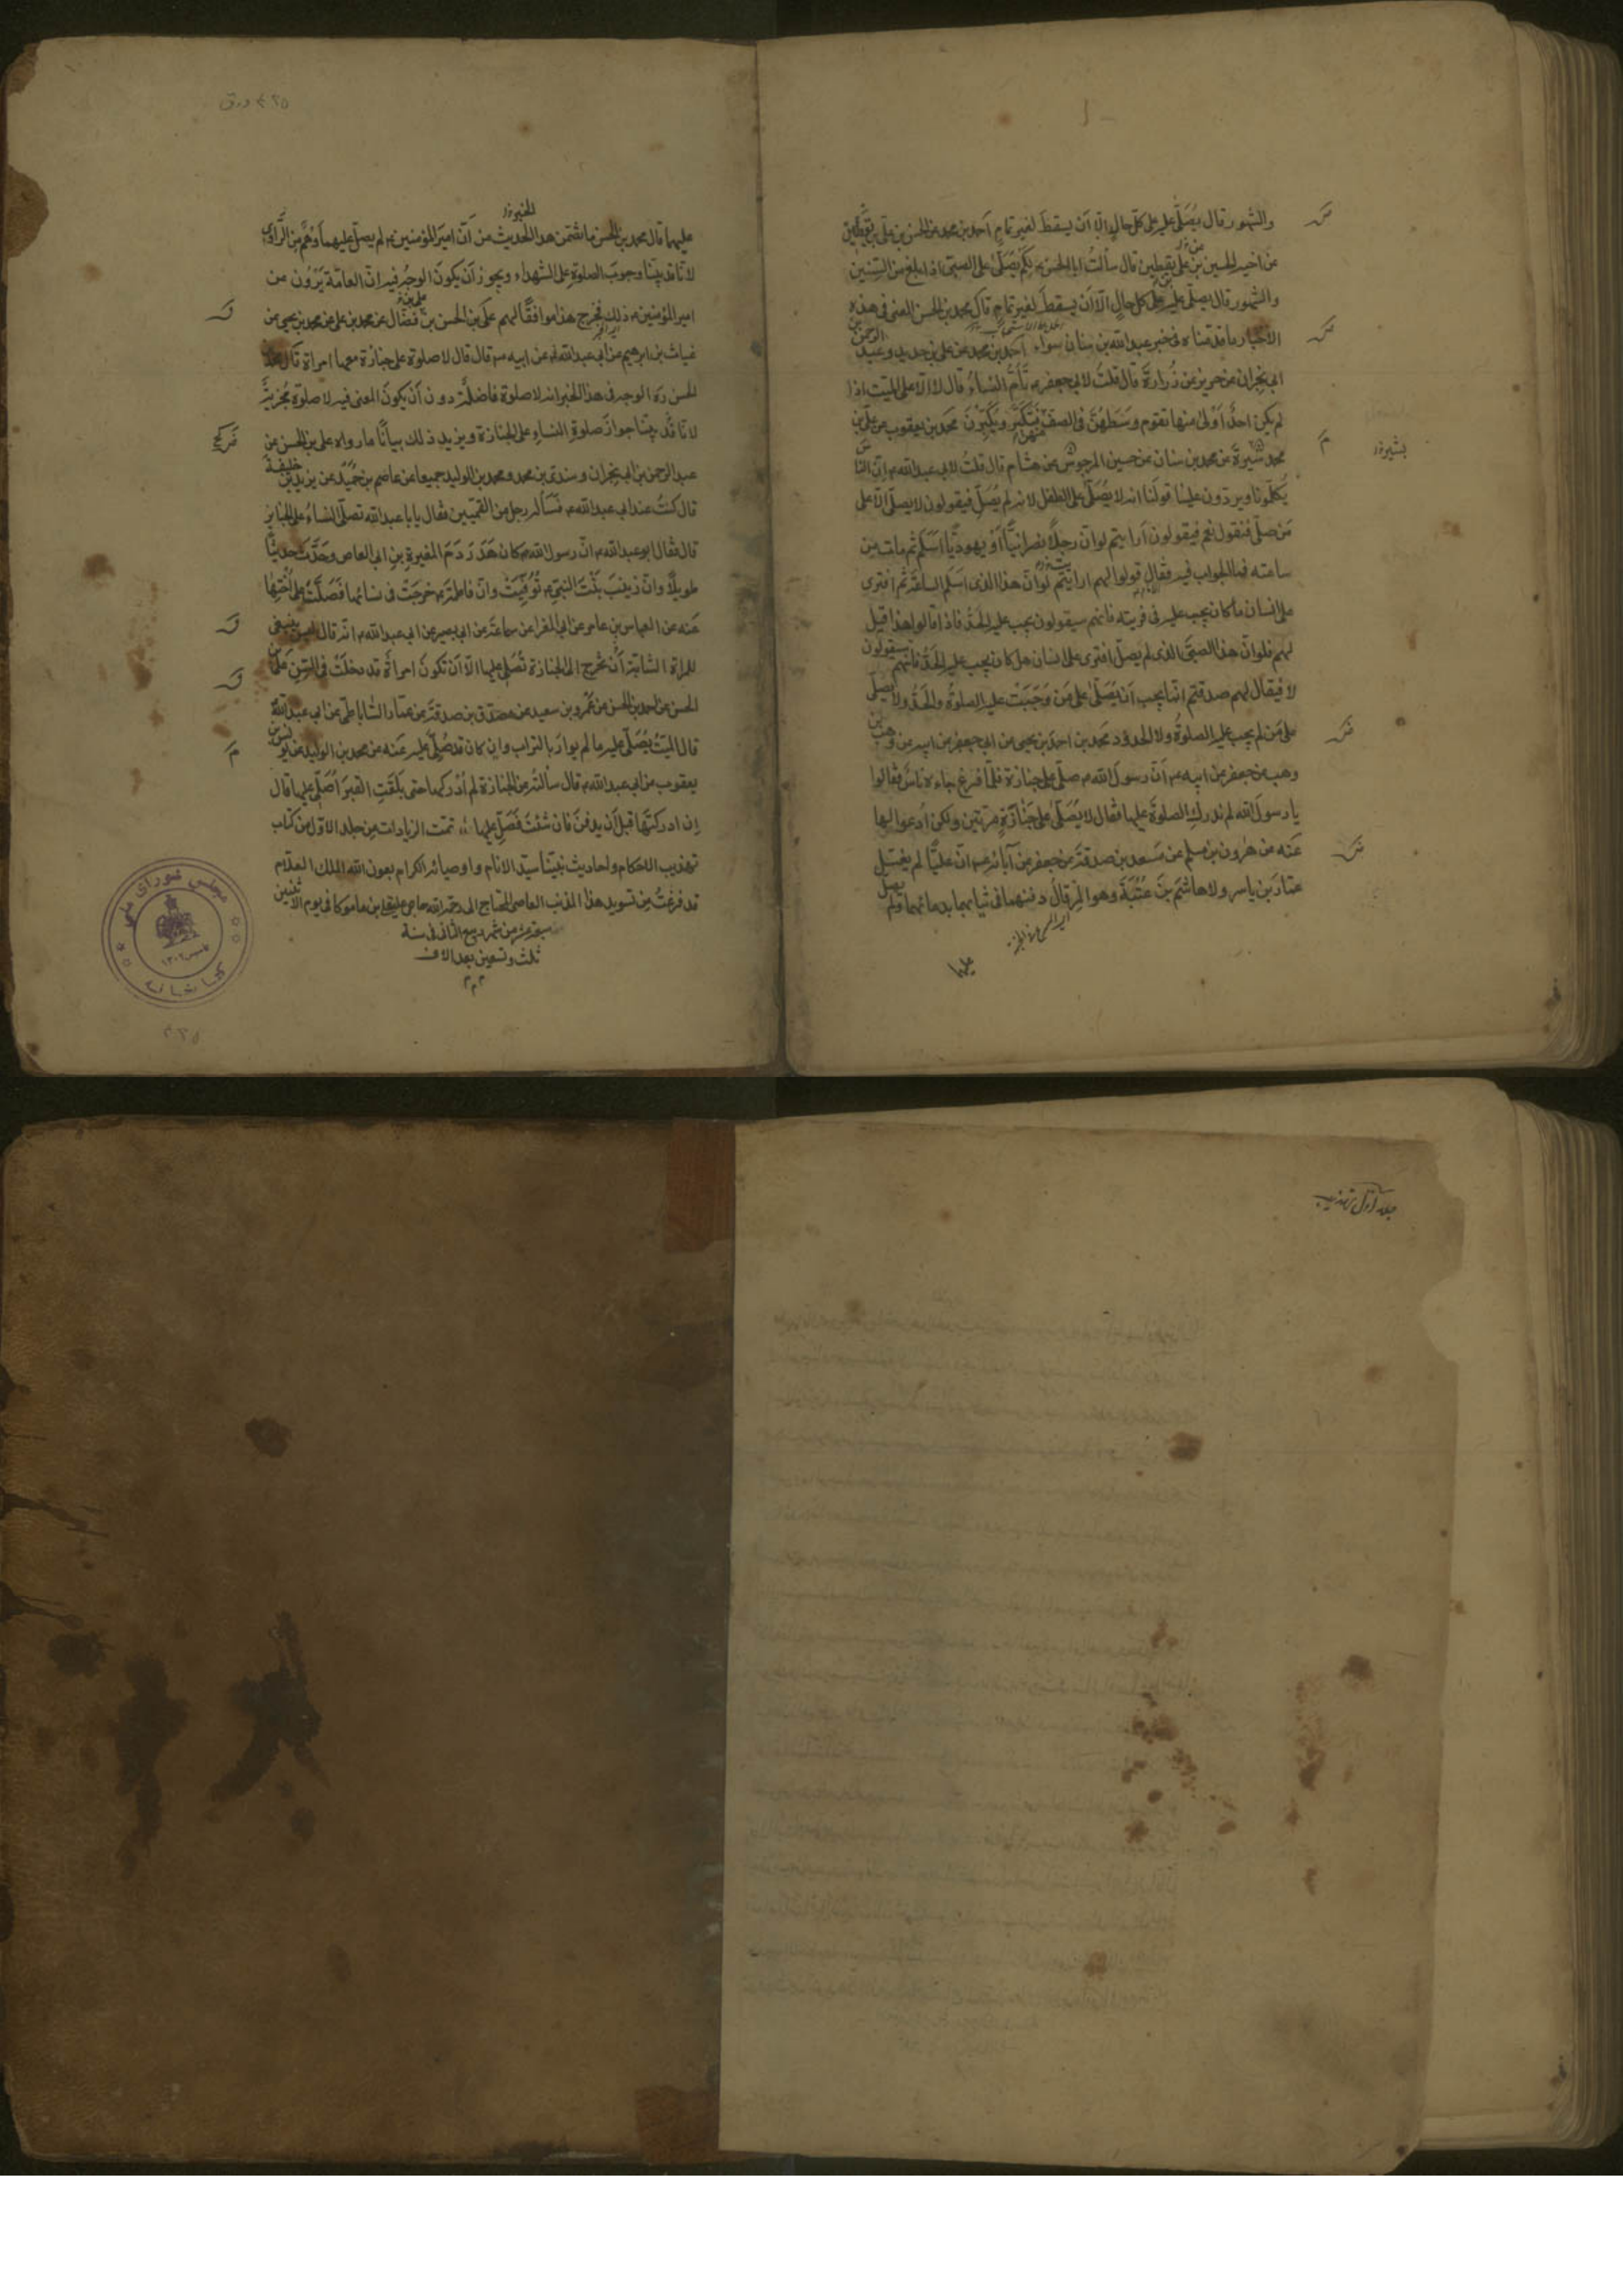 والشهور قال يُصَلّى عليه على كلّ حالٍ الّا اَن يسقطَ لغير تمامٍ اَحمد بن محمد عن الحسن بن على بن يقطين
عن اخيه الحسين بن على بن يقطين قال سألتُ ابا الحسن ع بِكَم يُصَلّى على الصبىّ اذا بلغ من السنين
والشهور قال يصلّى عليه على كل حالٍ الّا اَن يسقطَ لغير تمامٍ قال محمد بن الحسن المعنى فى هذه
الاخبار ما قدّمناه فى خبر عبد الله بن سنان سواء احمد بن محمد عن على بن حديد وعبد الرحمن بن
ابى نجران عن حريز عن زُرارة قال قلتُ لابى جعفر ع تَأُمّ النساءُ قال لا الّا على الميّت اذا
لم يكن احدٌ اَولىٰ منها تقوم وسَطَهُنّ فى الصفّ فتكبّر ويُكَبِّرْنَ محمد بن يعقوب عن على بن
محمد بن شيرة عن محمد بن سنان عن حسين المرجوس عن هشام قال قلتُ لابى عبد الله ع انّ الناس
يُكلّمونا ويردّون علينا قولَنا انه لا يُصَلّى على الطفل لانه لم يُصَلِّ فيقولون لا يصلّى الّا على
مَن صلّى فنقول نعم فيقولون اَرايتم لو انّ رجلًا نصرانيًّا اَو يهوديًّا اَسلَم ثم مات من
ساعته فما الجواب فيه فقال قولوا لهم ارايتم لو انّ هذا الذى اسلم الساعَة ثم افترى
على انسان ما كان يجب عليه فى فريته فانهم سيقولون يجب عليه الحدّ فاذا قالوا هذا قيل
لهم فلو انّ هذا الصبىّ الذى لم يصلّ افترى على انسان هل كان يجب عليه الحدّ فانهم سيقولون
لا فيقال لهم صدقتم انّما يجب اَن يُصَلّىٰ على مَن وَجَبَتْ عليه الصلوةُ والحدّ ولا يصلّى
على مَن لم يجب عليه الصلوةُ ولا الحدود محمد بن احمد بن يحيى عن ابى جعفر عن ابيه عن وهب بن
وهب عن جعفر عن ابيه ع اَنّ رسولَ الله ص صلّى على جنازة فلمّا فرغ جاءه ناسٌ فقالوا
يا رسولَ الله لم ندرك الصلوةَ عليها فقال لا يُصَلّىٰ على جَنازَةٍ مرّتين ولكن اُدعوا لها
عنه عن هٰرون بن مسلم عن مَسعدة بن صدقة عن جعفر عن آبائه ع انّ عليًّا لم يغسّل
عمّارَ بن ياسر ولا هاشمَ بنَ عُتْبَةَ وهو المِرقالُ دفنهما فى ثيابهما بدمائهما ولم يصلّ
عليهما
بشير
٤٢٥ ورق
عليهما قال محمد بن الحسن ما تضمّن هذا الحديث من اَنّ اميرَ المؤمنين ع لم يصلّ عليهما وَهْمٌ من الرَّاوى
لانّا قد بيّنّا وجوبَ الصلوة على الشهداء ويجوز اَن يكونَ الوجهُ فيه انّ العامّة يَرْوُونَ من
امير المؤمنين ع ذلك فخرج هذا موافقًا لهم على بن الحسن بن على بن فضّال عن محمد بن على عن محمد بن يحيى عن
غياث بن ابرهيم عن ابى عبد الله ع عن ابيه ع قال قال لا صلوة على جنازة معها امراة قال محمد بن
الحسن ره الوجه فى هذا الخبر انه لا صلوة فاضلةً دون اَن يكونَ المعنى فيه لا صلوة مُجزيةً
لانّا قد بيّنّا جوازَ صلوةِ النساءِ على الجنازة ويزيد ذلك بيانًا ما رواه على بن الحسن عن
عبد الرحمن بن ابى نجران وسندى بن محمد ومحمد بن الوليد جميعا عن عاصم بن حُمَيدٍ عن يزيد بن خليفة
قال كنتُ عند ابى عبد الله ع فَسَأله رجل من القميّين فقال يا با عبد الله تصلّى النساءُ على الجنائز
قال فقال ابو عبد الله ع انّ رسول الله ص كان هَدَرَ دَمَ المغيرةِ بن ابى العاص وحَدَّثَ حديثًا
طويلًا وانّ زينبَ بِنْتَ النبىّ ص تُوُفِّيَتْ وانّ فاطمةَ ع خرجَتْ فى نسائها فَصَلَّتْ على اُخْتِها
عنه عن العباس بن عامر عن ابى المغرا عن سماعة عن ابى بصير عن ابى عبد الله ع انّه قال ليس ينبغى
للمراة الشابّة اَن تخرج الى الجنازة تُصَلّى عليها الّا اَن تكونَ امراةً قد دخلَتْ فى السنّ على بن
الحسن عن احمد بن الحسن عن عمرو بن سعيد عن مصدّق بن صدقة عن عمّار الساباطىّ عن ابى عبد الله
قال الميّتُ يُصَلّى عليه ما لم يوارَ بالتراب وان كان قد صُلِّىَ عليه عنه عن محمد بن الوليد عن يونس بن
يعقوب عن ابى عبد الله ع قال سألتُه عن الجنازة لم اُدركها حتى بلَغَتِ القبرَ اُصَلّى عليها قال
اِن ادركتَها قبل اَن يدفنَ فان شئتَ فَصَلِّ عليها تمّت الزيادات من جلد الاوّل من كتاب
تهذيب الاحكام ولحاديث نبيّنا سيّد الانام واوصيائه الكرام بعون الله الملك العلّام
قد فرغتُ من تسويد هذا المذنب العاصى المحتاج الى رحمة الله حاجى عليخان بن ماموكا فى يوم الاثنين
سبعة عشر من شهر ربيع الثانى فى سنة
ثلث وتسعين بعد الالف
م م م
مجلس شورای ملی
کتابخانه
٤٢٥
جلد اوّل تهذیب